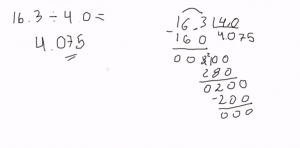 16.3 ÷ 4 0 =
4.075
16.3 4.0
-16 0 4.075
00 300
280
0200
-200
000